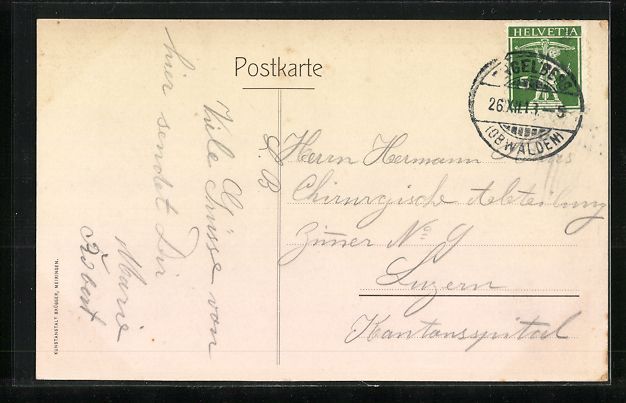 Postkarte
HELVETIA
ENGELBERG
26.XII.13.-5
(OBWALDEN)
L. B
Viele Grüsse von
hier sendet Dir
Marie
Robert
Herrn Hermann
Chirurgische Abteilung
Zimmer No 9
Luzern
Kantonsspital
KUNSTANSTALT BRÜGGER, MEIRINGEN.